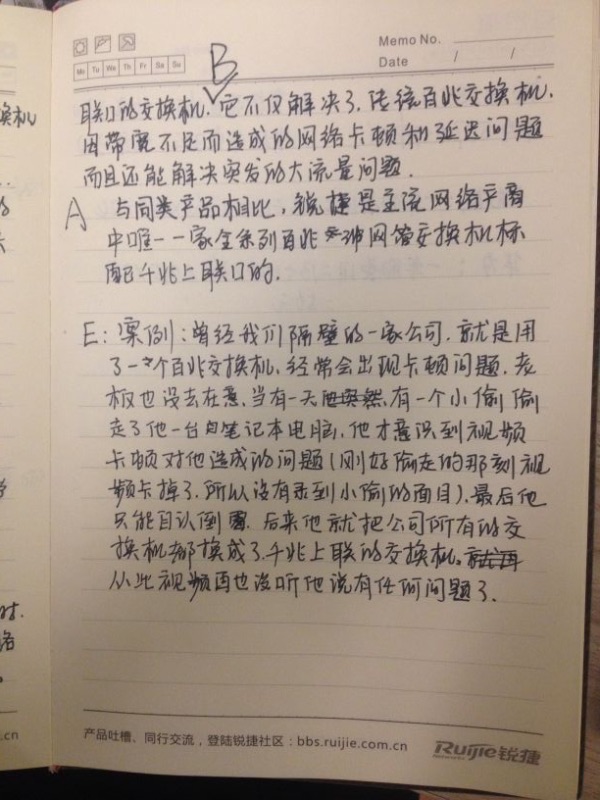 Memo No.
Mo Tu We Th Fr Sa Su
Date / /
B
联口的交换机. 它不仅解决了. 传统百兆交换机.
因带宽不足而造成的网络卡顿和延迟问题
而且还能解决突发的大流量问题.
A 与同类产品相比, 锐捷是主流网络产商
中唯一一家全系列百兆 网管交换机标
配千兆上联口的.
E: 案例: 曾经我们隔壁的一家公司. 就是用
了一个百兆交换机. 经常会出现卡顿问题. 老
板也没去在意. 当有一天 有一个小偷偷
走了他一台 笔记本电脑. 他才意识到视频
卡顿对他造成的问题(刚好偷走的那刻视
频卡掉了. 所以没有录到小偷的面目). 最后他
只能自认倒 后来他就把公司所有的交
换机都换成了. 千兆上联的交换机.
从此视频再也没听他说有任何问题了.
产品吐槽、同行交流，登陆锐捷社区：bbs.ruijie.com.cn
Ruijie锐捷
换机
时.
络
.cn